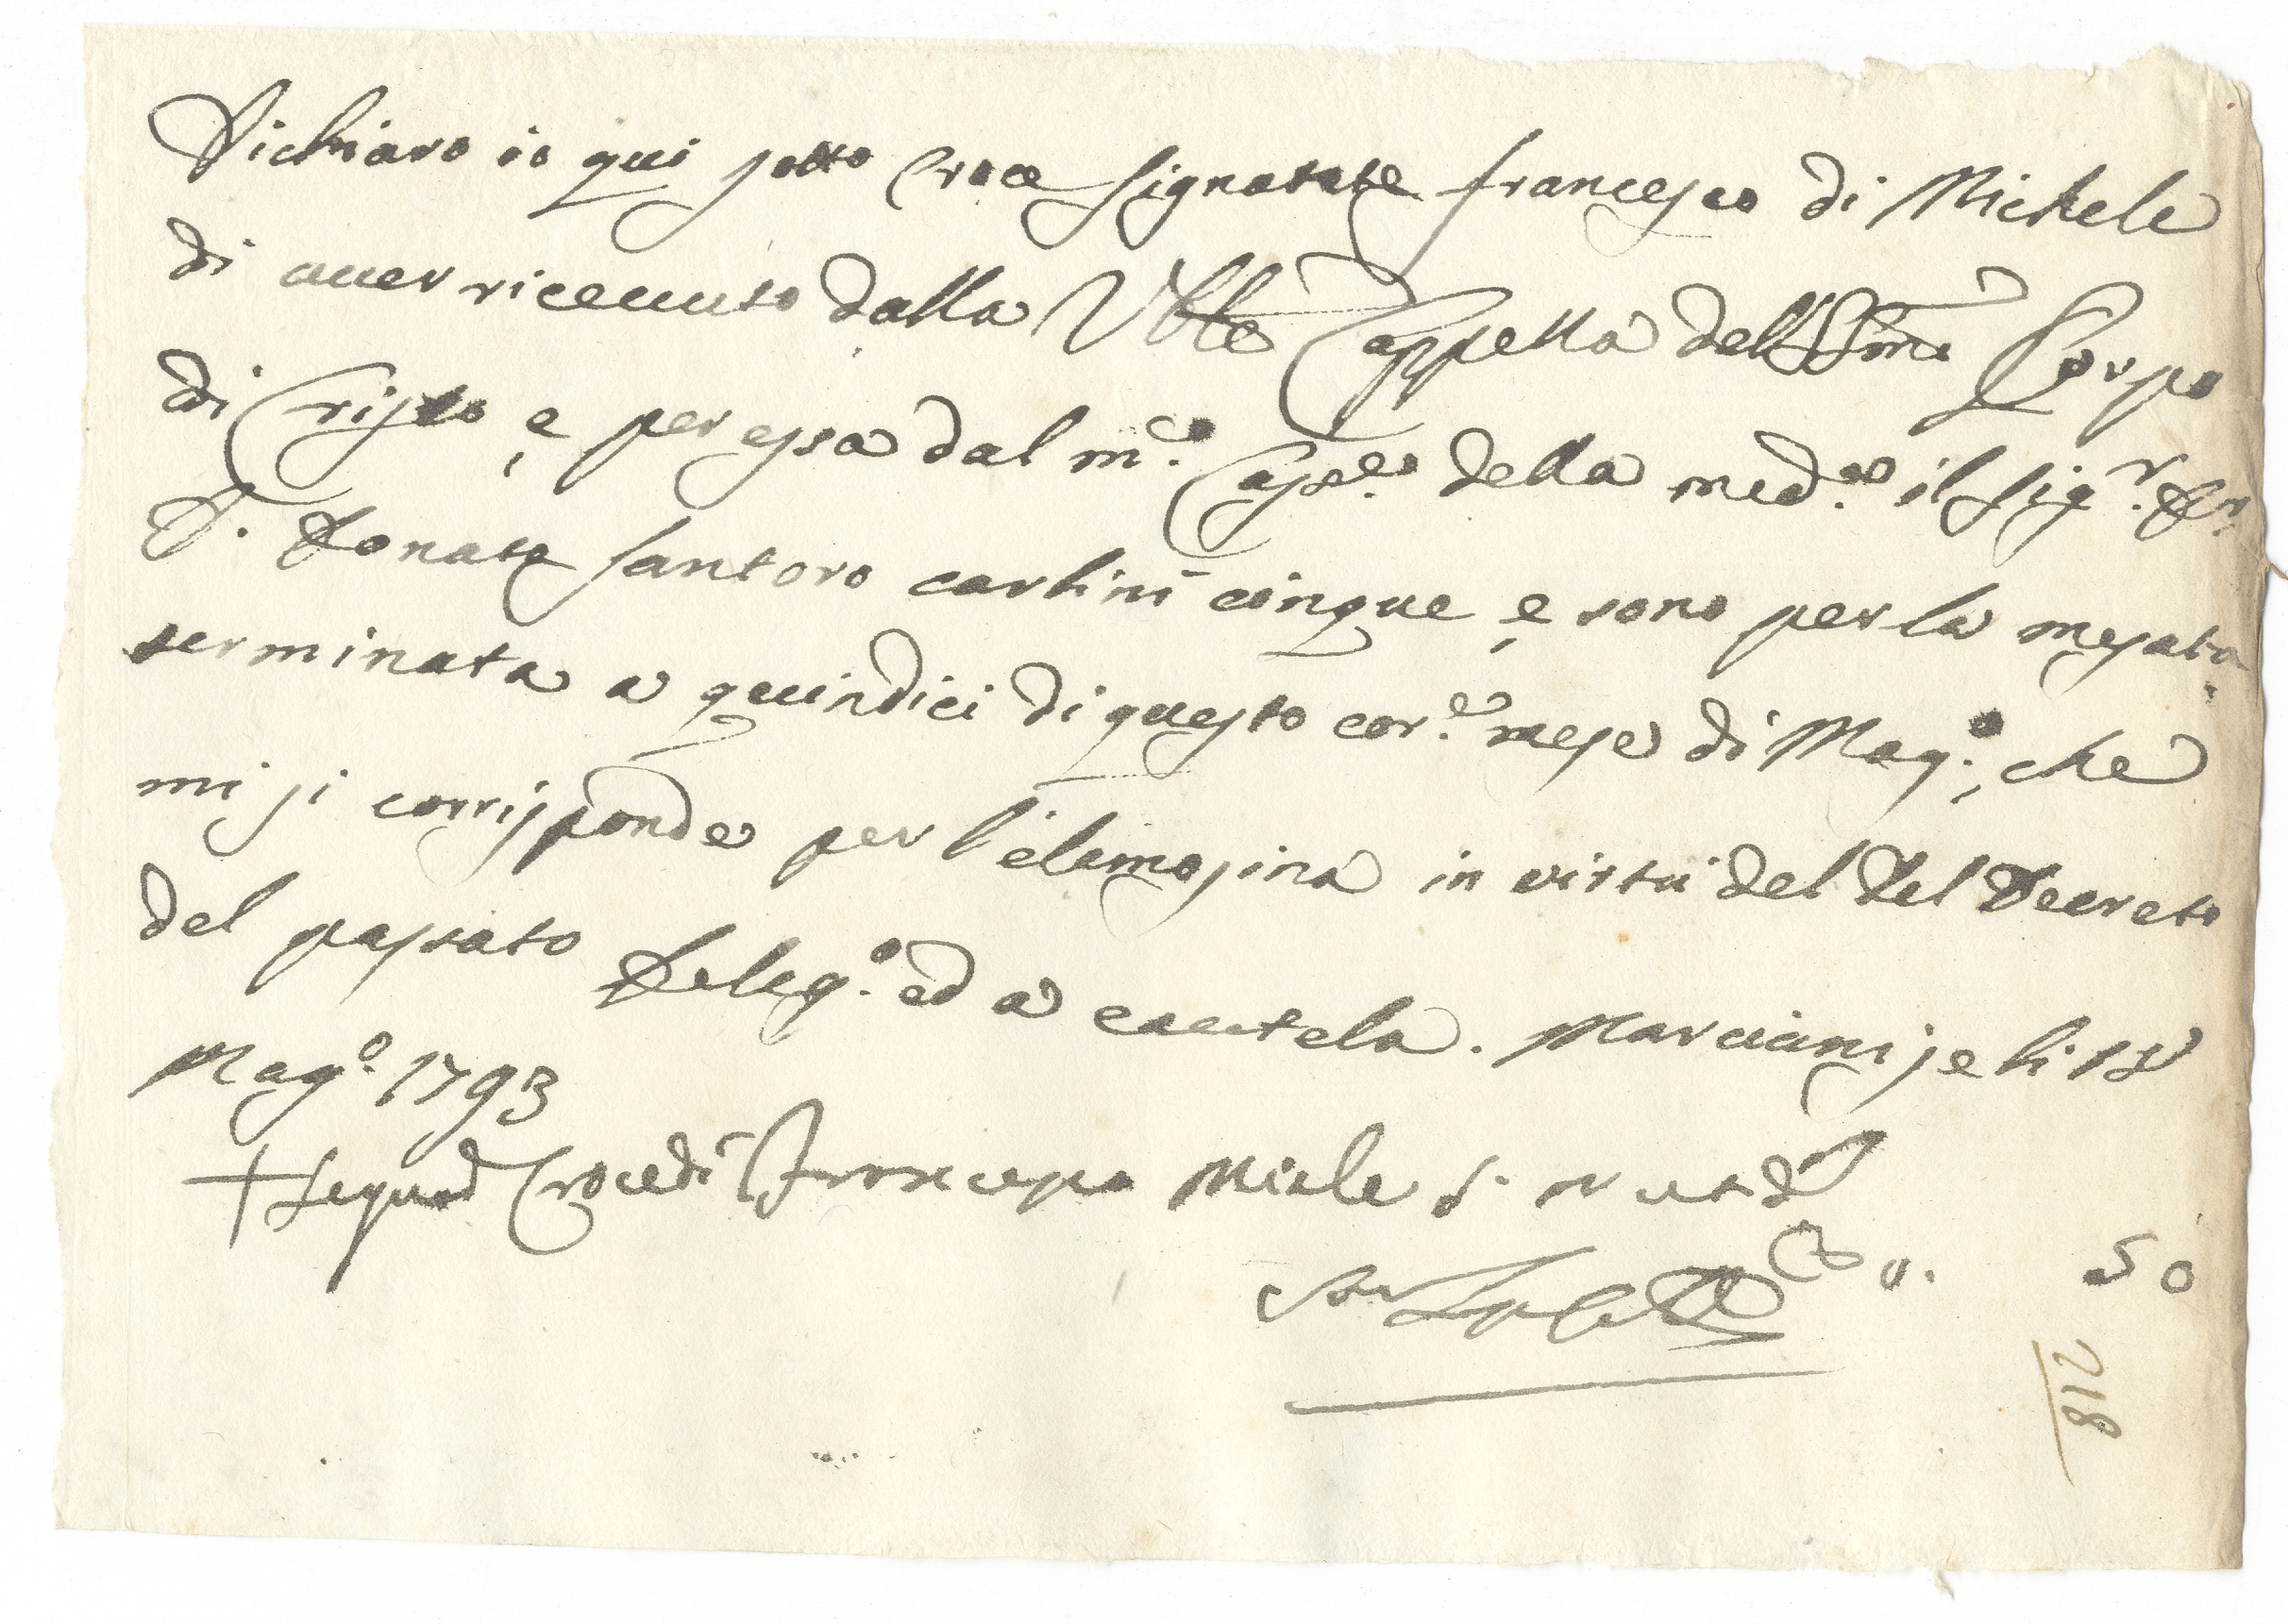 Dichiaro io qui sotto Croce signatate francesco di Michele
di auer riceuuto dalla Vble Cappella dell SSmo Corpo
di Cristo, e per essa dal m.co Cass.re della med.ma il Sig.r Dr.
D. Donato Santoro carlini cinque, e sono per la mesata
terminata a quindici di questo cor.e mese di Mag.o, che
mi si corrisponde per l'elemosina in virtù del del Decreto
del passato Deleg.o ed a cautela. Marcianise li 15
Mag.o 1793
+ Segno di Croce di Francesco Michele
50
218